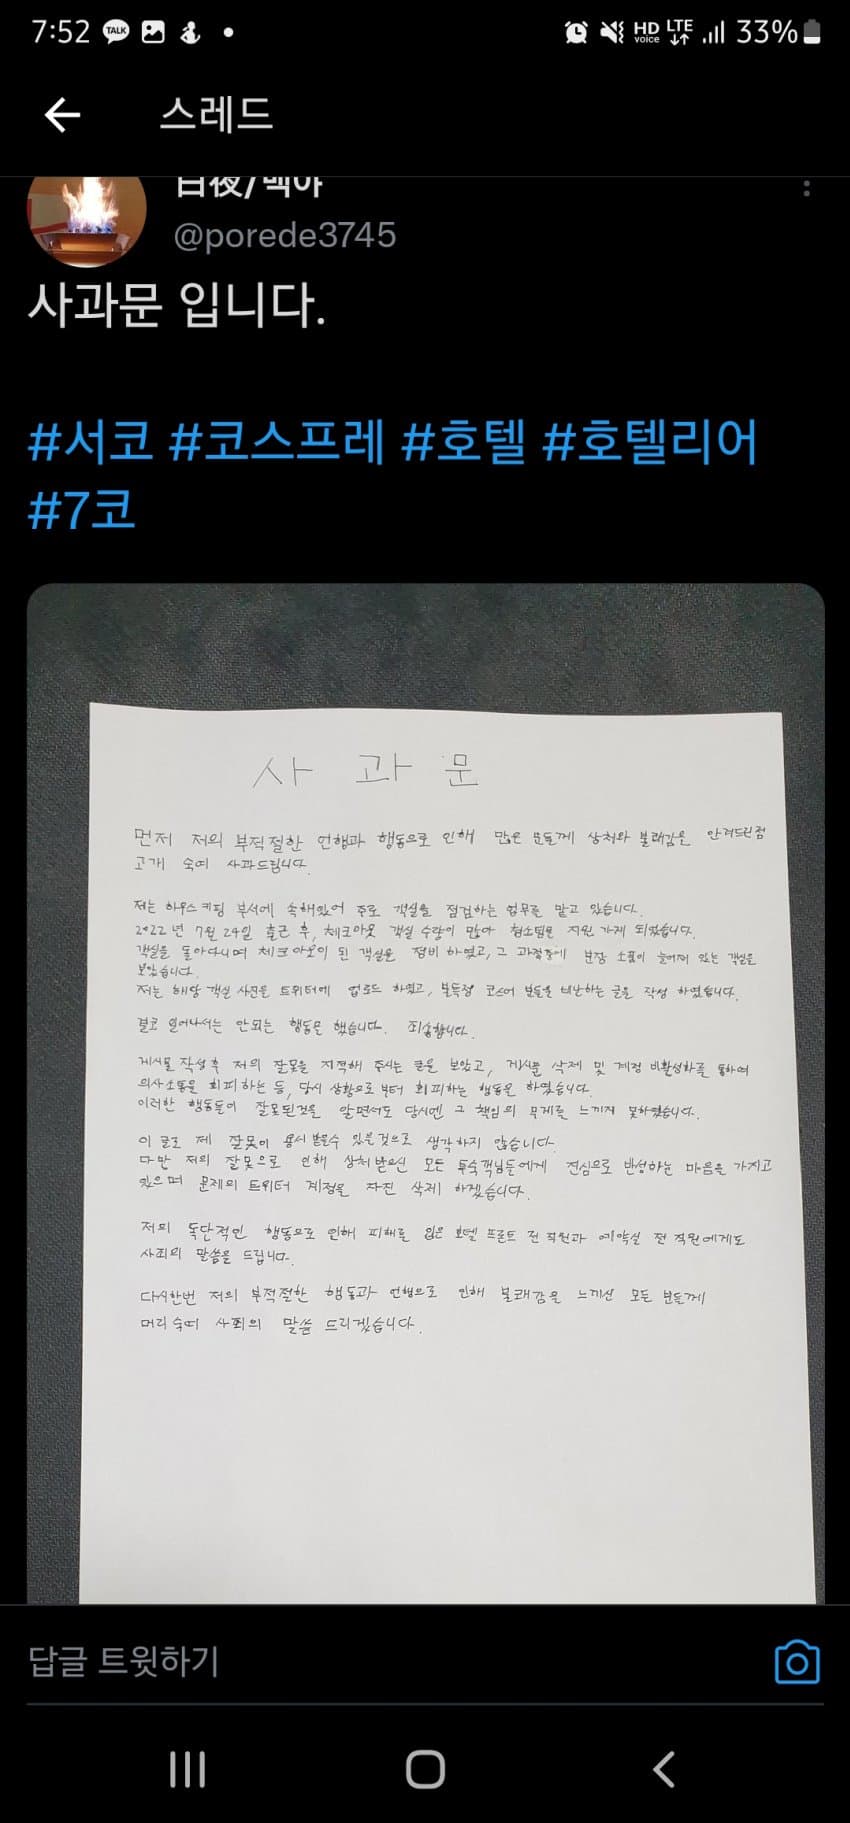 7:52 TALK HD voice LTE 33%
스레드
白夜/백야
@porede3745
사과문 입니다.
#서코 #코스프레 #호텔 #호텔리어
#7코
사 과 문
먼저 저의 부적절한 언행과 행동으로 인해 많은 분들께 상처와 불쾌감을 안겨드린점
고개 숙여 사과드립니다.
저는 하우스키핑 부서에 속해있어 주로 객실을 점검하는 업무를 맡고 있습니다.
2022년 7월 24일 출근 후, 체크아웃 객실 수량이 많아 청소팀을 지원 가게 되었습니다.
객실을 돌아다니며 체크아웃이 된 객실을 정비 하였고, 그 과정중에 분장 소품이 늘어져 있는 객실을
보았습니다.
저는 해당 객실 사진을 트위터에 업로드 하였고, 불특정 코스어 분들을 비난하는 글을 작성 하였습니다.
결코 일어나서는 안되는 행동을 했습니다. 죄송합니다.
게시물 작성후 저의 잘못을 지적해 주시는 글을 보았고, 게시물 삭제 및 계정 비활성화를 통하여
의사소통을 회피하는 등, 당시 상황으로부터 회피하는 행동을 하였습니다.
이러한 행동들이 잘못된것을 알면서도 당시엔 그 책임의 무게를 느끼지 못하였습니다.
이 글로 제 잘못이 용서 받을수 있을것으로 생각하지 않습니다.
다만 저의 잘못으로 인해 상처받으신 모든 투숙객님들에게 진심으로 반성하는 마음을 가지고
있으며 문제의 트위터 계정을 자진 삭제 하겠습니다.
저의 독단적인 행동으로 인해 피해를 입은 호텔 프론트 전 직원과 예약실 전 직원에게도
사죄의 말씀을 드립니다.
다시한번 저의 부적절한 행동과 언행으로 인해 불쾌감을 느끼신 모든 분들께
머리숙여 사죄의 말씀 드리겠습니다.
답글 트윗하기